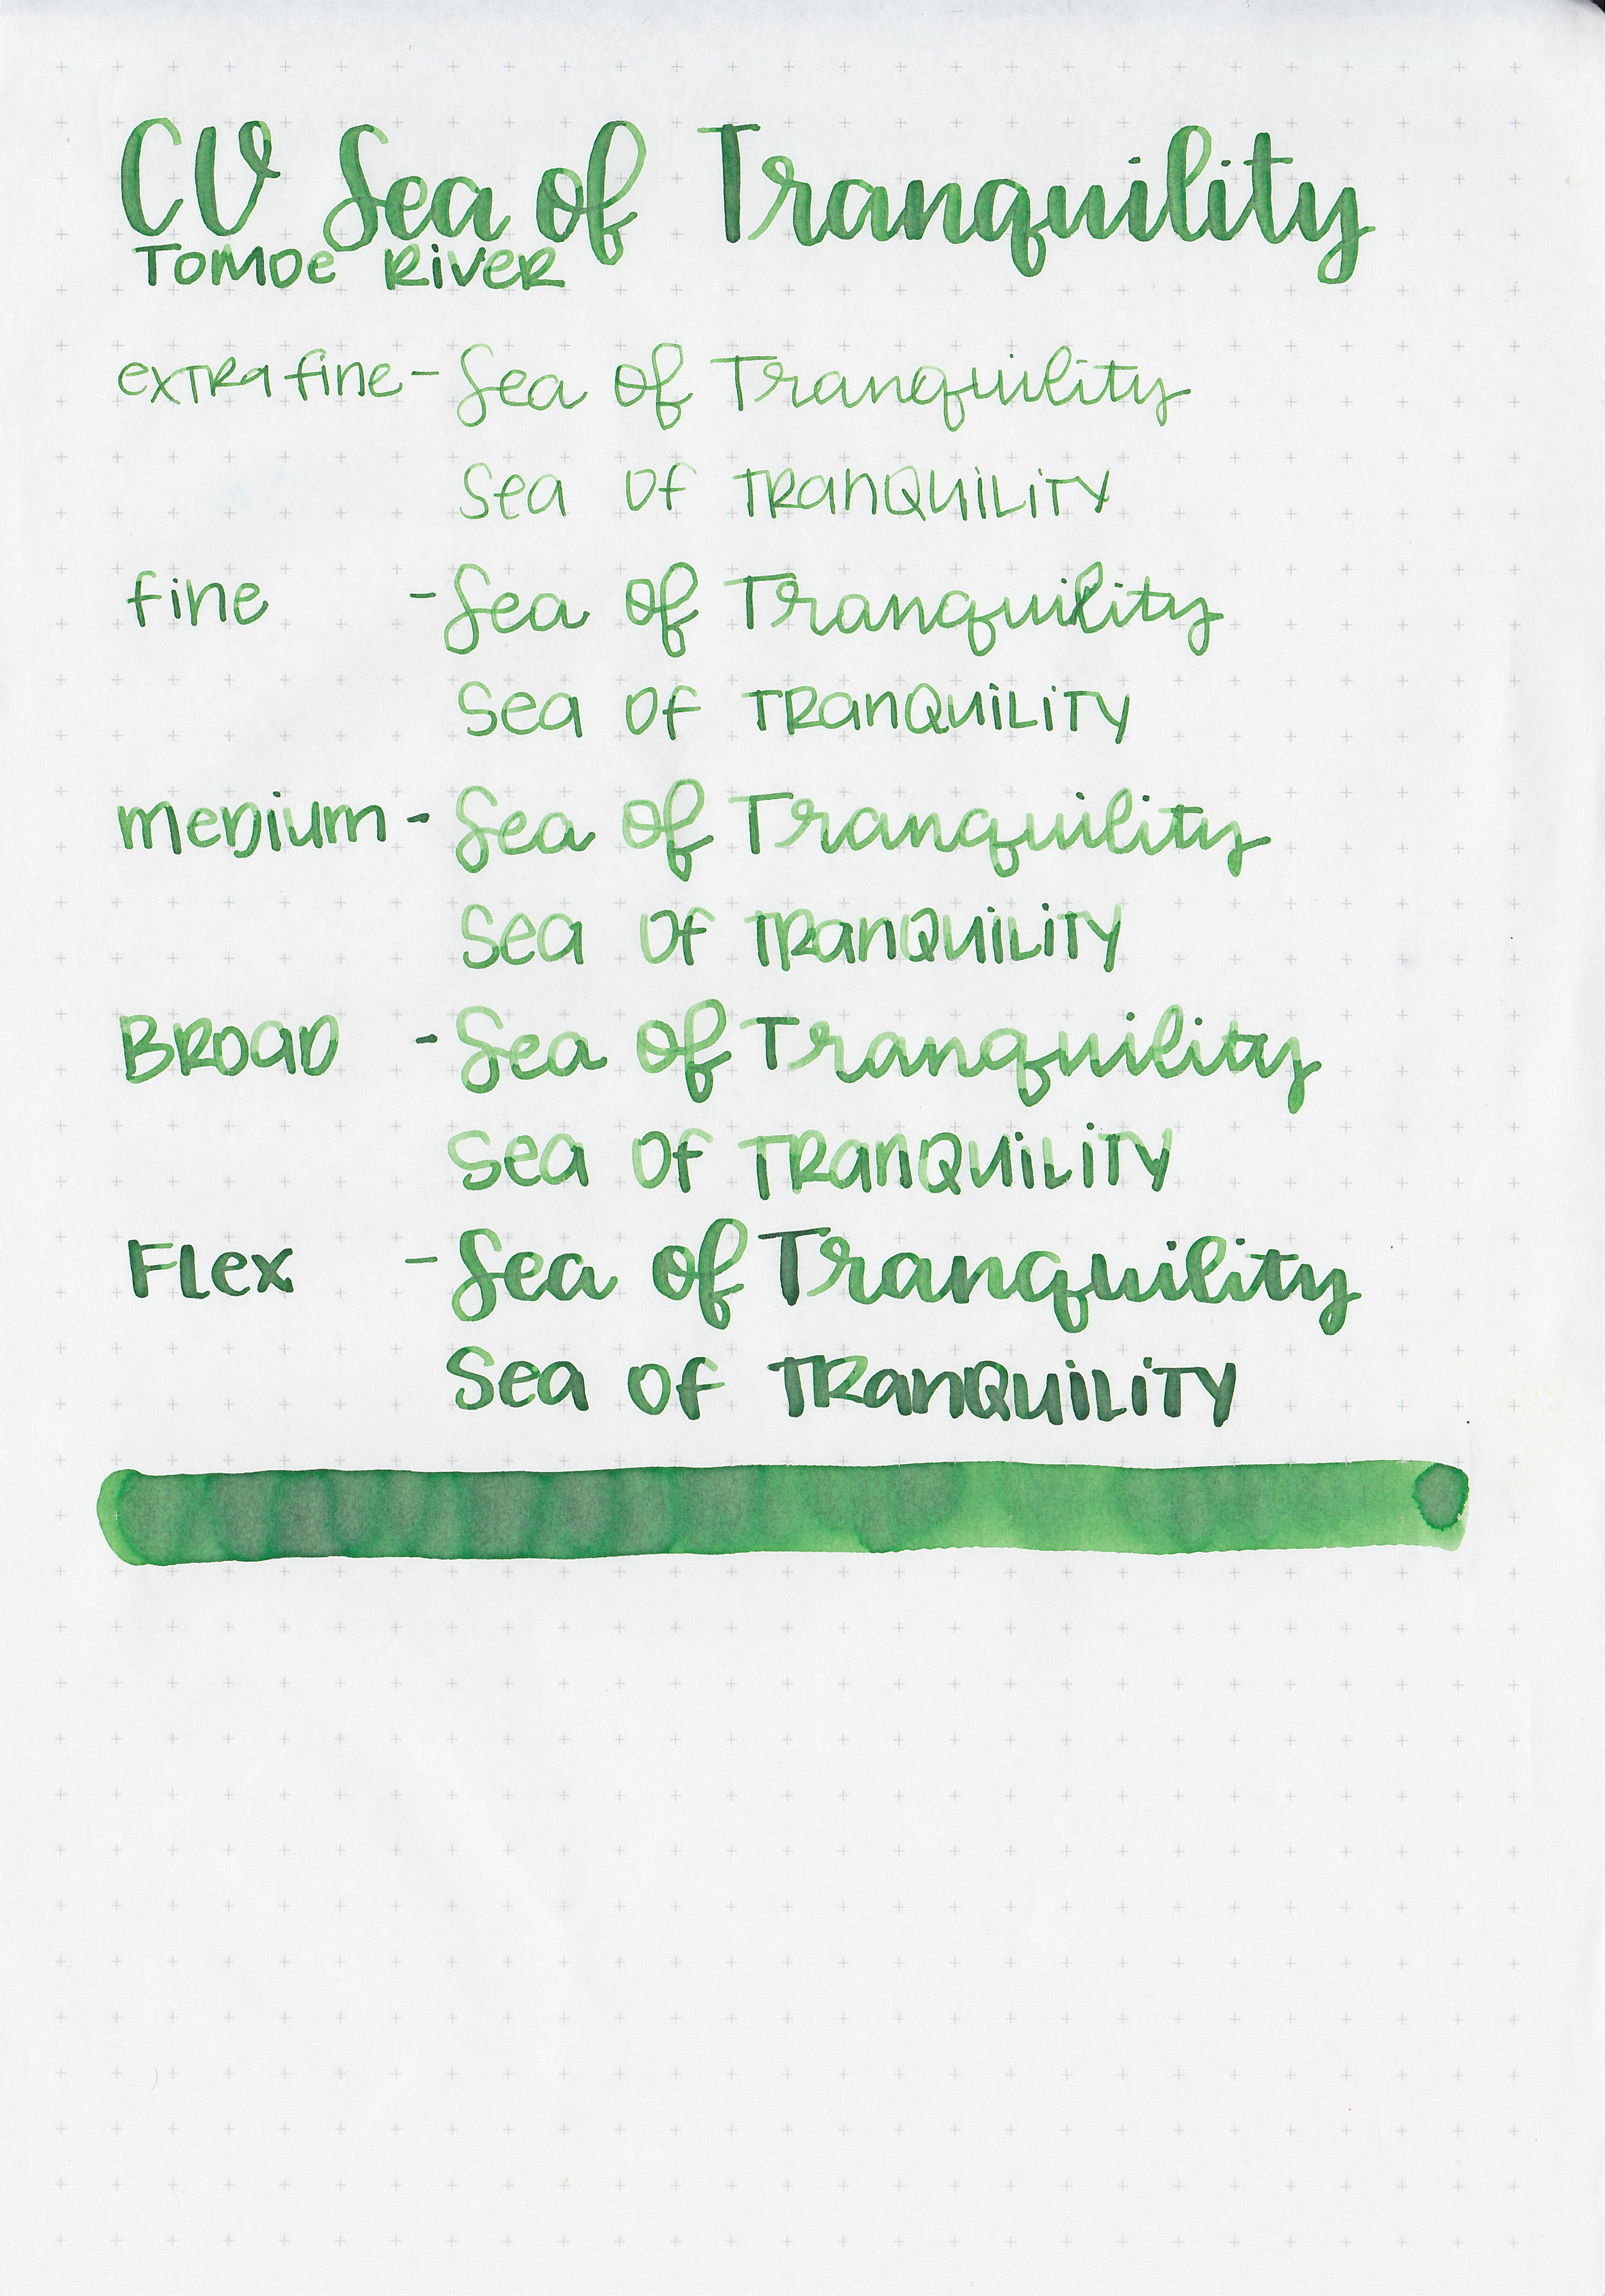 CV Sea of Tranquility
Tomoe River
extra fine - Sea of Tranquility
Sea of Tranquility
fine - Sea of Tranquility
Sea of Tranquility
medium - Sea of Tranquility
Sea of Tranquility
Broad - Sea of Tranquility
Sea of Tranquility
Flex - Sea of Tranquility
Sea of Tranquility